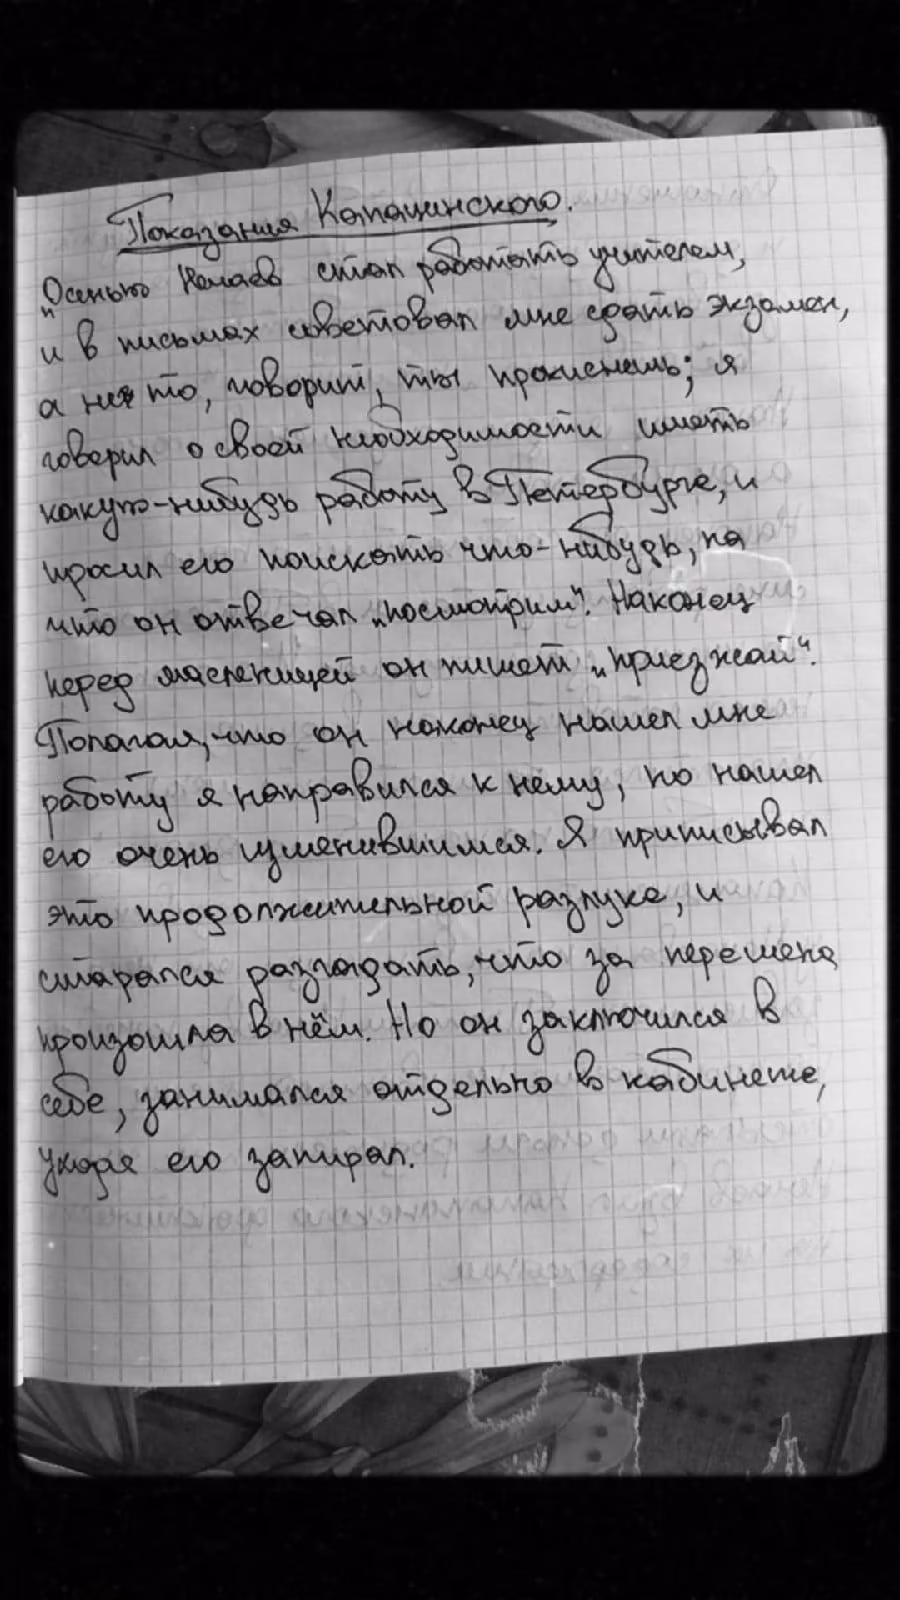 Показания Капацинского.
„Осенью Нечаев стал работать учителем,
и в письмах советовал мне сдать экзамен,
а не то, говорит, ты прокиснешь; я
говорил о своей необходимости иметь
какую-нибудь работу в Петербурге, и
просил его поискать что-нибудь, на
что он отвечал „посмотрим". Наконец
перед масленицей он пишет „приезжай".
Полагая, что он наконец нашел мне
работу я направился к нему, но нашел
его очень изменившимся. Я приписывал
это продолжительной разлуке, и
старался разгадать, что за перемена
произошла в нём. Но он заключился в
себе, занимался отдельно в кабинете,
уходя его запирал.